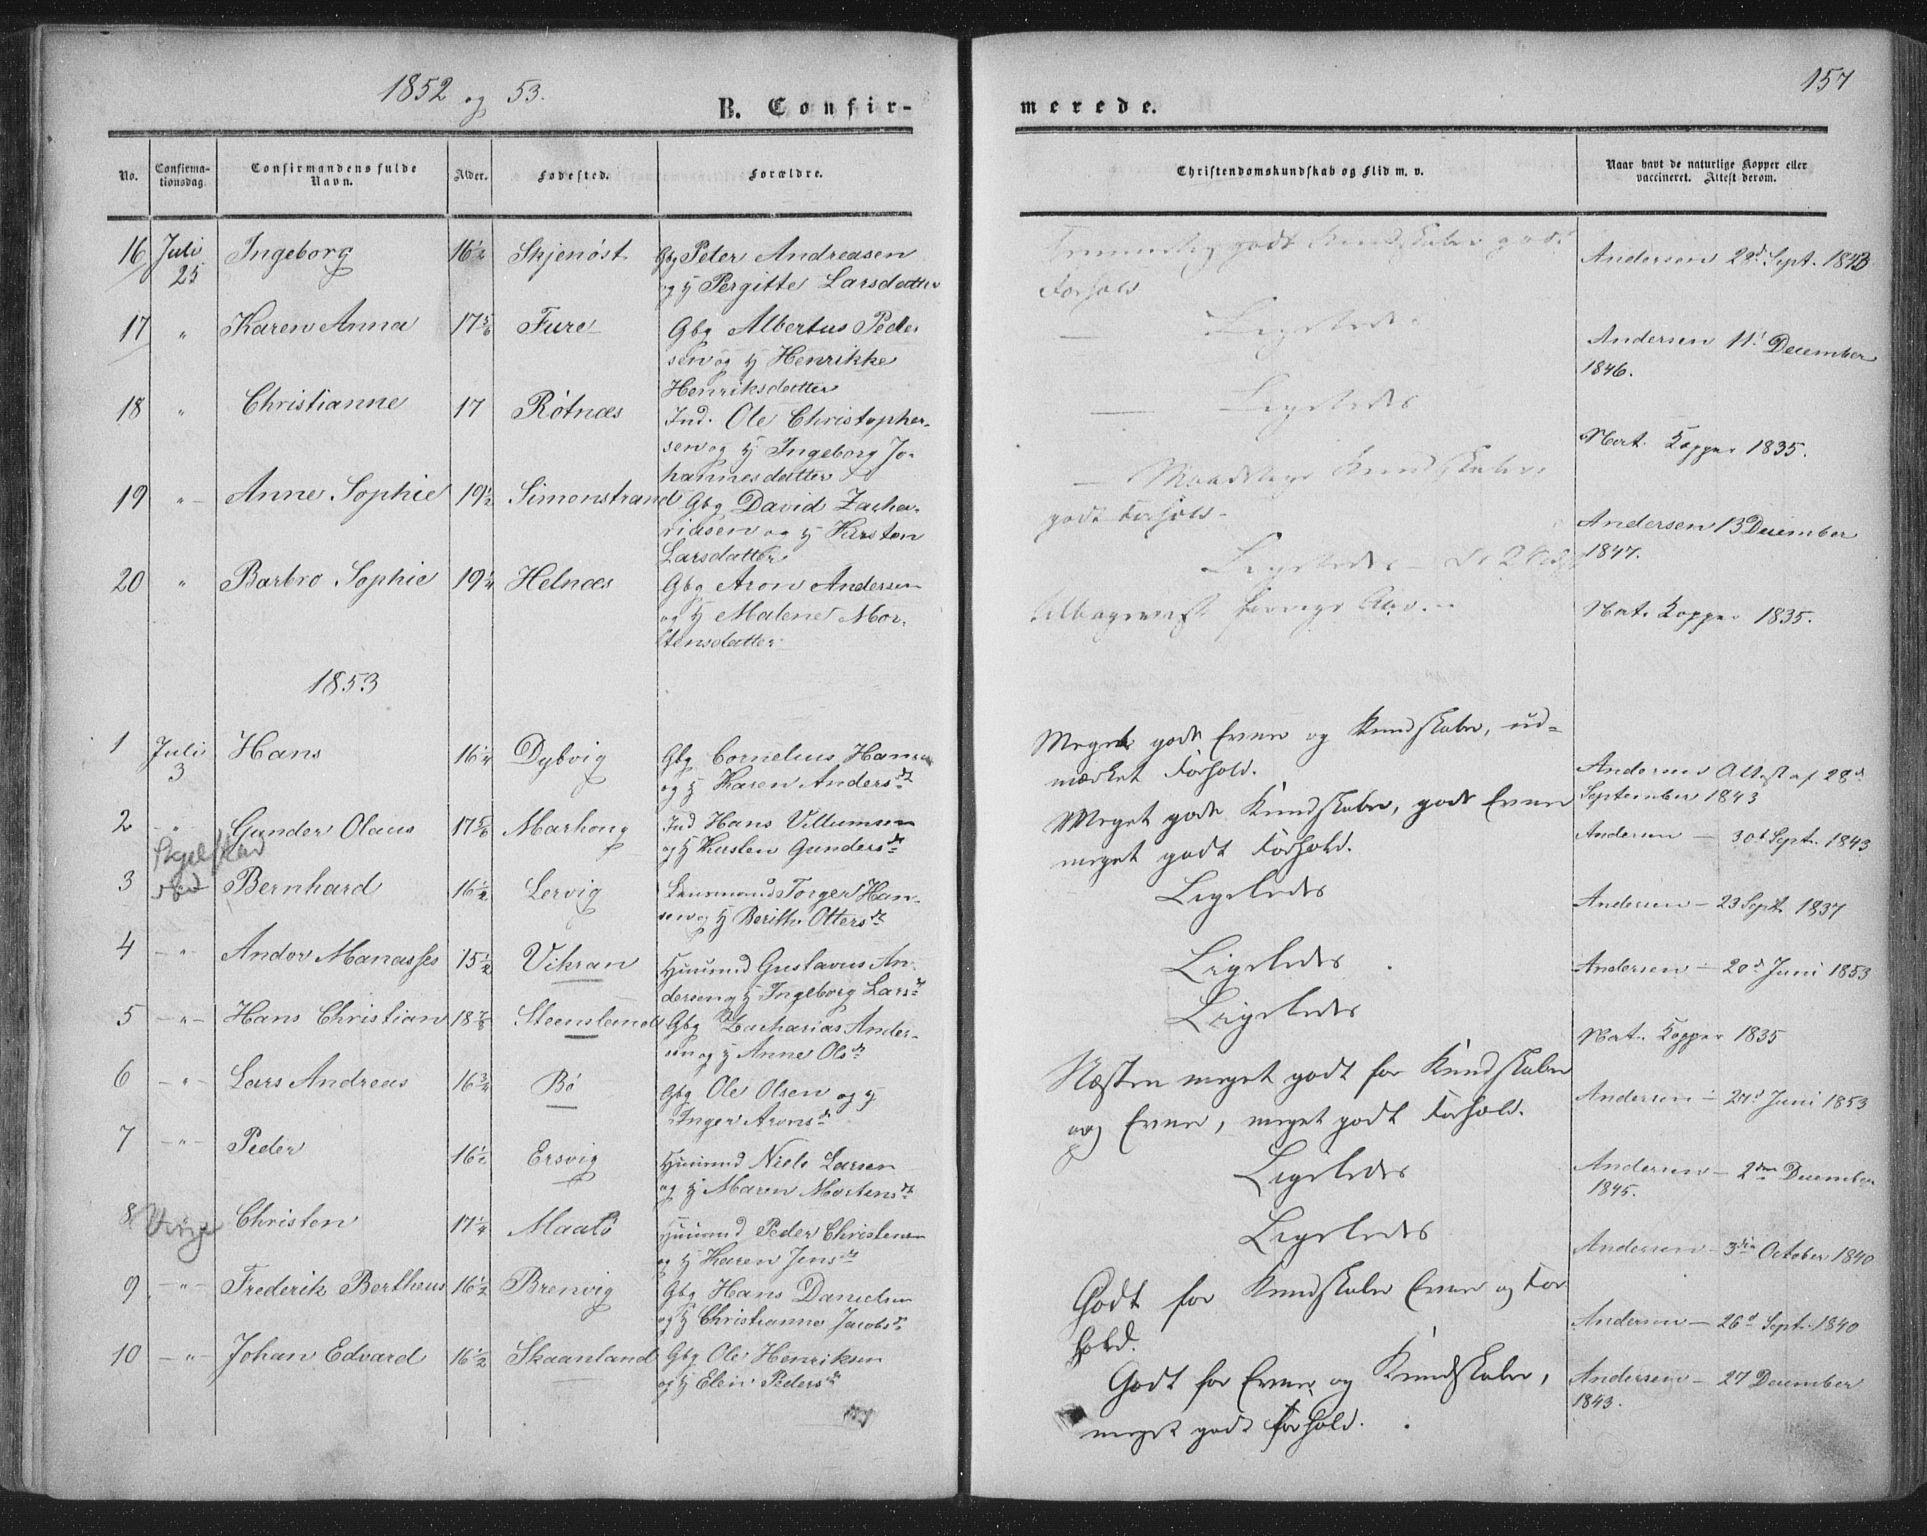 1852 og 53.
B. Confir-
merede.
157
No.
Confirma-
tionsdag.
Confirmandens fulde
Navn.
Alder.
Fødested.
Forældre.
Christendomskundskab og Flid m. v.
Naar havt de naturlige Kopper eller
vaccineret. Attest derom.
16 Juli Ingeborg 16½ Skjenøst Gbg Peter Andreasen
25 og H Pergitte Larsdatter
godt Kundskaber godt
Forhold
Andersen 28d Sept. 1843
17 " Karen Anna 17 5/6 Fure Gbg Albertus Peder
sen og H Henrikke
Henriksdatter
Ligeledes
Andersen 11' December
1846.
18 " Christianne 17 Rötnæs Ind. Ole Christopher-
sen og H Ingeborg Jo-
hannesdatter
Ligeledes
Nat. Kopper 1835.
19 " Anne Sophie 19½ Simonstrand Gbg David Zacha-
riasen og H Kirsten
Larsdatter
Maadelige Kundskaber
godt Forhold.
Andersen 13 December
1847.
20 " Barbro Sophie 19¼ Helnæs Gbg Aron Andersen
og H Malene Mor-
tensdatter
Ligeledes
tilbageviist forrige Aar.
Nat. Kopper 1835.
1853
1 Juli Hans 16¼ Dybvig Gbg Cornelius Hansen
3 og H Karen Andersdt
Meget godt Evner og Kundskaber, ud-
mærket Forhold.
Andersens Attest af 28d
September 1843
2 " Gunder Olaus 17 5/6 Marhoug Ind Hans Villumsen
og H Kirsten Gundersdt
Meget godt Kundskaber, godt Evner
meget godt Forhold.
Andersen — 30t Sept. 1843
3 Bernhard 16½ Lervig Torger Han-
sen og H Berith Ottersdt
Ligeledes
Andersen — 23 Sept. 1837
4 — " Andor Manasses 15½ Vikran Huusmd Gustavus An-
dersen og H Ingeborg Larsdt
Ligeledes
Andersen — 20d Juni 1853
5 — " — Hans Christian 18 7/8 Steensland Gbg Zacharias Ander-
sen og H Anne Olsdt
Ligeledes
Nat. Kopper 1835
6 — " — Lars Andreas 16¾ Bø Gbg Ole Olsen og H
Inger Aronsdt
Næsten meget godt for Kundskaber
og Evner, meget godt Forhold.
Andersen — Juni 1853
7 — " — Peder 16½ Ersvig Huusmd Niels Larsen
og H Maren Mortensdt
Ligeledes
Andersen — 2den December
1845.
8 Christen 17¼ Maalö Huusmd Peder Christensen
og H Karen Jensdt
Ligeledes
Andersen — 3die October 1840
9 — " — Frederik Bertheus 16½ Brenvig Gbg Hans Danielsen
og H Christianna Jacobsdt
Godt for Kundskaber Evner og For
hold.
Andersen — 26d Sept. 1840
10 — " — Johan Edvard 16½ Skaanland Gbg Ole Henriksen
og H Elen Pedersdt
Godt for Evner og Kundskaber,
meget godt Forhold.
Andersen — 27 December
1843.